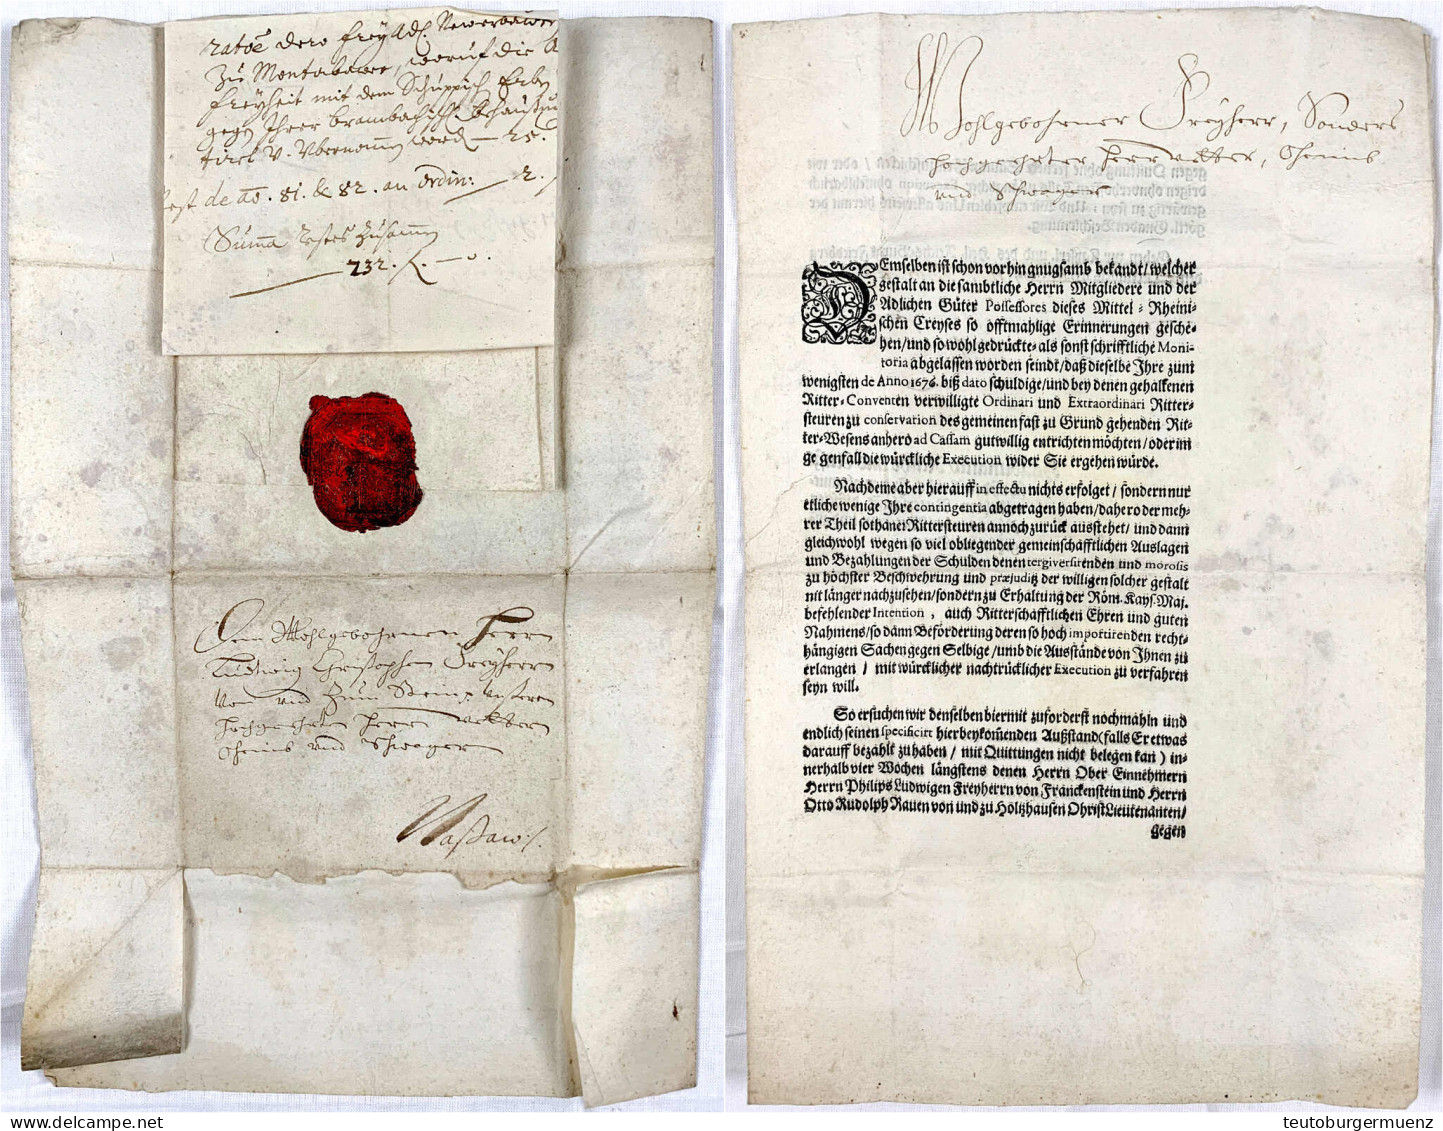 ratõe dero freyAdl. Newerbawer
Zu Montabawr, woruf die
freyheit mit dem Schüppich Erben
gegen Ihrer brambachisch behaußu
tirt v. Ubernommen word – 25.
Rest de aõ. 81. & 82. an ordin: — 2.
Summa restes zusamm
232. f. – 0.
Dem Wohlgebohrnen Herrn
Ludwig Christophen Freyherrn
von und Zum Stein p. unseren
hochgeehrten Herrn Vettern
Oheimb und Schwagern
Naßaw.
Wohlgebohrner Freyherr, Sonders
hochgeehrter Herr Vetter, Oheimb
und Schwager
DEmselben ist schon vorhin gnugsamb bekandt / welcher
gestalt an die sämbtliche Herrn Mitgliedere und der
Adlichen Güter Possessores dieses Mittel-Rheini-
schen Creyses so öfftmahlige Erinnerungen gesche-
hen / und so wohl gedrückte- als sonst schrifftliche Moni-
toria abgelassen worden seindt / daß dieselbe Ihre zum
wenigsten de Anno 1676. biß dato schuldige / und bey denen gehaltenen
Ritter-Conventen verwilligte Ordinari und Extraordinari Ritter-
steuren zu conservation des gemeinen fast zu Grund gehenden Rit-
ter-Wesens anhero ad Cassam gutwillig entrichten möchten / oder im
ge genfall die würckliche Execution wider Sie ergehen würde.
Nachdeme aber hierauff in effectu nichts erfolget / sondern nur
etliche wenige Ihre contingentia abgetragen haben / dahero der meh-
rer Theil sothaner Rittersteuren annoch zurück ausstehet / und dann
gleichwohl wegen so viel obliegender gemeinschäfftlichen Auslagen
und Bezahlungen der Schulden denen tergiversirenden und morosis
zu höchster Beschwehrung und præjuditz der willigen solcher gestalt
nit länger nachzusehen / sondern zu Erhaltung der Röm. Kays. Maj.
befehlender Intention, auch Ritterschäfftlichen Ehren und guten
Nahmens / so dann Beförderung deren so hoch importirenden recht-
hängigen Sachen gegen Selbige / umb die Ausstände von Ihnen zu
erlangen / mit würcklicher nachtrücklicher Execution zu verfahren
seyn will.
So ersuchen wir denselben hiermit zuforderst nochmahln und
endlich seinen specificirt hierbeykom̄enden Außstand (falls Er etwas
darauff bezahlt zu haben / mit Quittungen nicht belegen kan) in-
nerhalb vier Wochen längstens denen Herrn Ober Einnehmern
Herrn Philips Ludwigen Freyherrn von Franckenstein und Herrn
Otto Rudolph Rauen von und zu Holtzhausen Obrist Lieutenanten /
gegen
teutoburgermuenz